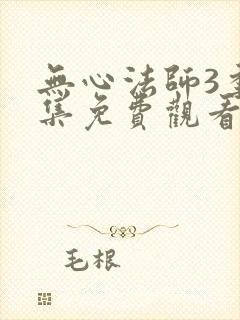 無心法師3
集免費觀看
毛根